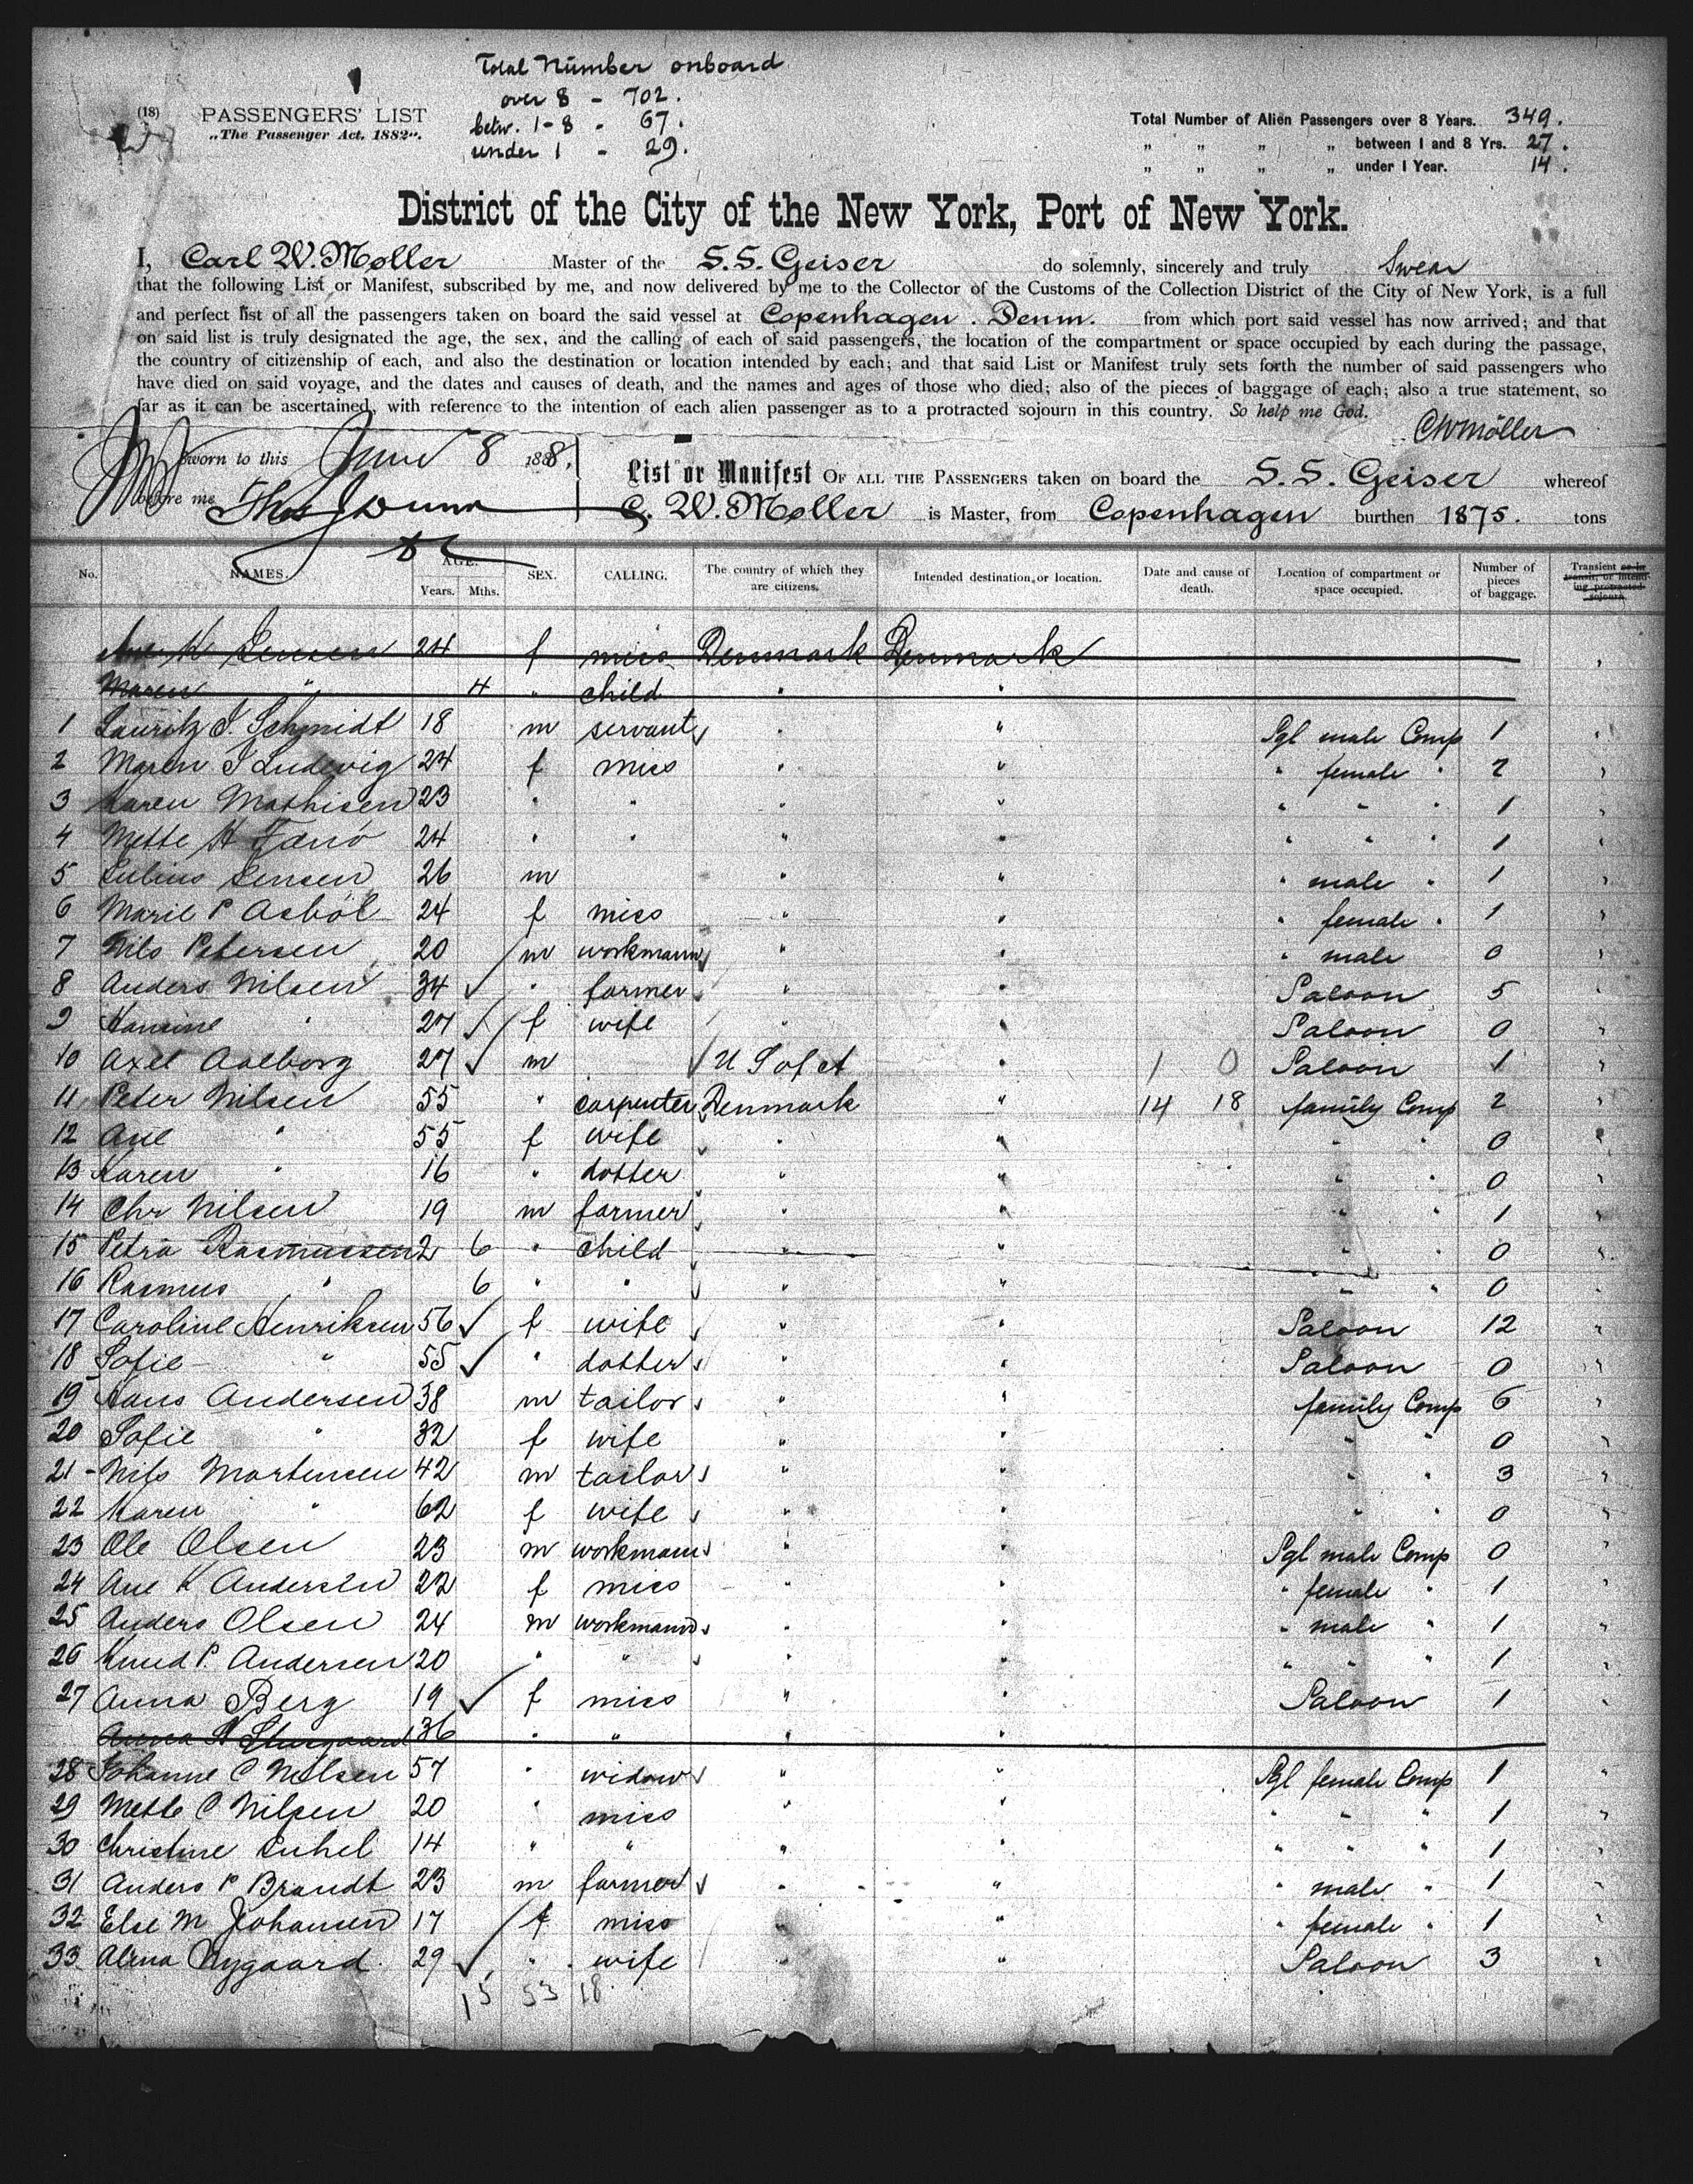 Total Number onboard
over 8 - 702.
betw. 1-8 - 67.
under 1 - 29.
(18) PASSENGERS' LIST
„The Passenger Act, 1882".
Total Number of Alien Passengers over 8 Years. 349.
„ „ „ „ between 1 and 8 Yrs. 27.
„ „ „ „ under 1 Year. 14.
District of the City of the New York, Port of New York.
I, Carl W. Møller Master of the S.S. Geiser do solemnly, sincerely and truly Swear
that the following List or Manifest, subscribed by me, and now delivered by me to the Collector of the Customs of the Collection District of the City of New York, is a full
and perfect list of all the passengers taken on board the said vessel at Copenhagen. Denm. from which port said vessel has now arrived; and that
on said list is truly designated the age, the sex, and the calling of each of said passengers, the location of the compartment or space occupied by each during the passage,
the country of citizenship of each, and also the destination or location intended by each; and that said List or Manifest truly sets forth the number of said passengers who
have died on said voyage, and the dates and causes of death, and the names and ages of those who died; also of the pieces of baggage of each; also a true statement, so
far as it can be ascertained, with reference to the intention of each alien passenger as to a protracted sojourn in this country. So help me God.
CWMöller
Sworn to this June 8 1888.
before me Thos J Dunn
List or Manifest OF ALL THE PASSENGERS taken on board the S.S. Geiser whereof
C. W. Møller is Master, from Copenhagen burthen 1875. tons
No. NAMES. AGE. Years. Mths. SEX. CALLING. The country of which they are citizens. Intended destination, or location. Date and cause of death. Location of compartment or space occupied. Number of pieces of baggage. Transient or in transit, or intending protracted sojourn
Ane K Jensen 24 f miss Denmark Denmark
Maren " 4 " child " "
1 Lauritz J. Schmidt 18 m servant " " Sgl male Comp 1 "
2 Maren J Ludevig 24 f miss " " " female " 2 "
3 Karen Mathisen 23 " " " " " " " 1 "
4 Mette H Fanö 24 " " " " " " " 1 "
5 Julius Jensen 26 m " " " male " 1 "
6 Marie P Asböl 24 f miss " " " female " 1 "
7 Nils Petersen 20 m workmann " " " male 0 "
8 Anders Nilsen 34 " farmer " " Saloon 5 "
9 Hansine " 27 f wife " " Saloon 0 "
10 Axel Aalborg 27 m U S of A " 1 0 Saloon 1 "
11 Peter Nilsen 55 " carpenter Denmark " 14 18 family Comp 2 "
12 Ane " 55 f wife " " " " 0 "
13 Karen " 16 " dotter " " " " 0 "
14 Chr Nilsen 19 m farmer " " " " 1 "
15 Petra Rasmussen 2 6 " child " " " " 0 "
16 Rasmus " 6 " " " " " " 0 "
17 Caroline Henriksen 56 f wife " " Saloon 12 "
18 Sofie " 55 " dotter " " Saloon 0 "
19 Hans Andersen 38 m tailor " " family Comp 6 "
20 Sofie " 32 f wife " " " " 0 "
21 Nils Mortensen 42 m tailor " " " " 3 "
22 Karen " 62 f wife " " " " 0 "
23 Ole Olsen 23 m workmann " " Sgl male Comp 0 "
24 Ane K Andersen 22 f miss " " " female " 1 "
25 Anders Olsen 24 m workmann " " " male " 1 "
26 Knud P. Andersen 20 " " " " " " " 1 "
27 Anna Berg 19 f miss " " Saloon 1 "
Anna 36 " " " "
28 Johanne C Nilsen 57 " widow " " Sgl female Comp 1 "
29 Mette C Nilsen 20 " miss " " " " " 1 "
30 Christine 14 " " " " " " " 1 "
31 Anders P Brandt 23 m farmer " " " male " 1 "
32 Else M Johansen 17 f miss " " " female " 1 "
33 Alma Nygaard 29 " wife " " Saloon 3 "
15 53 18